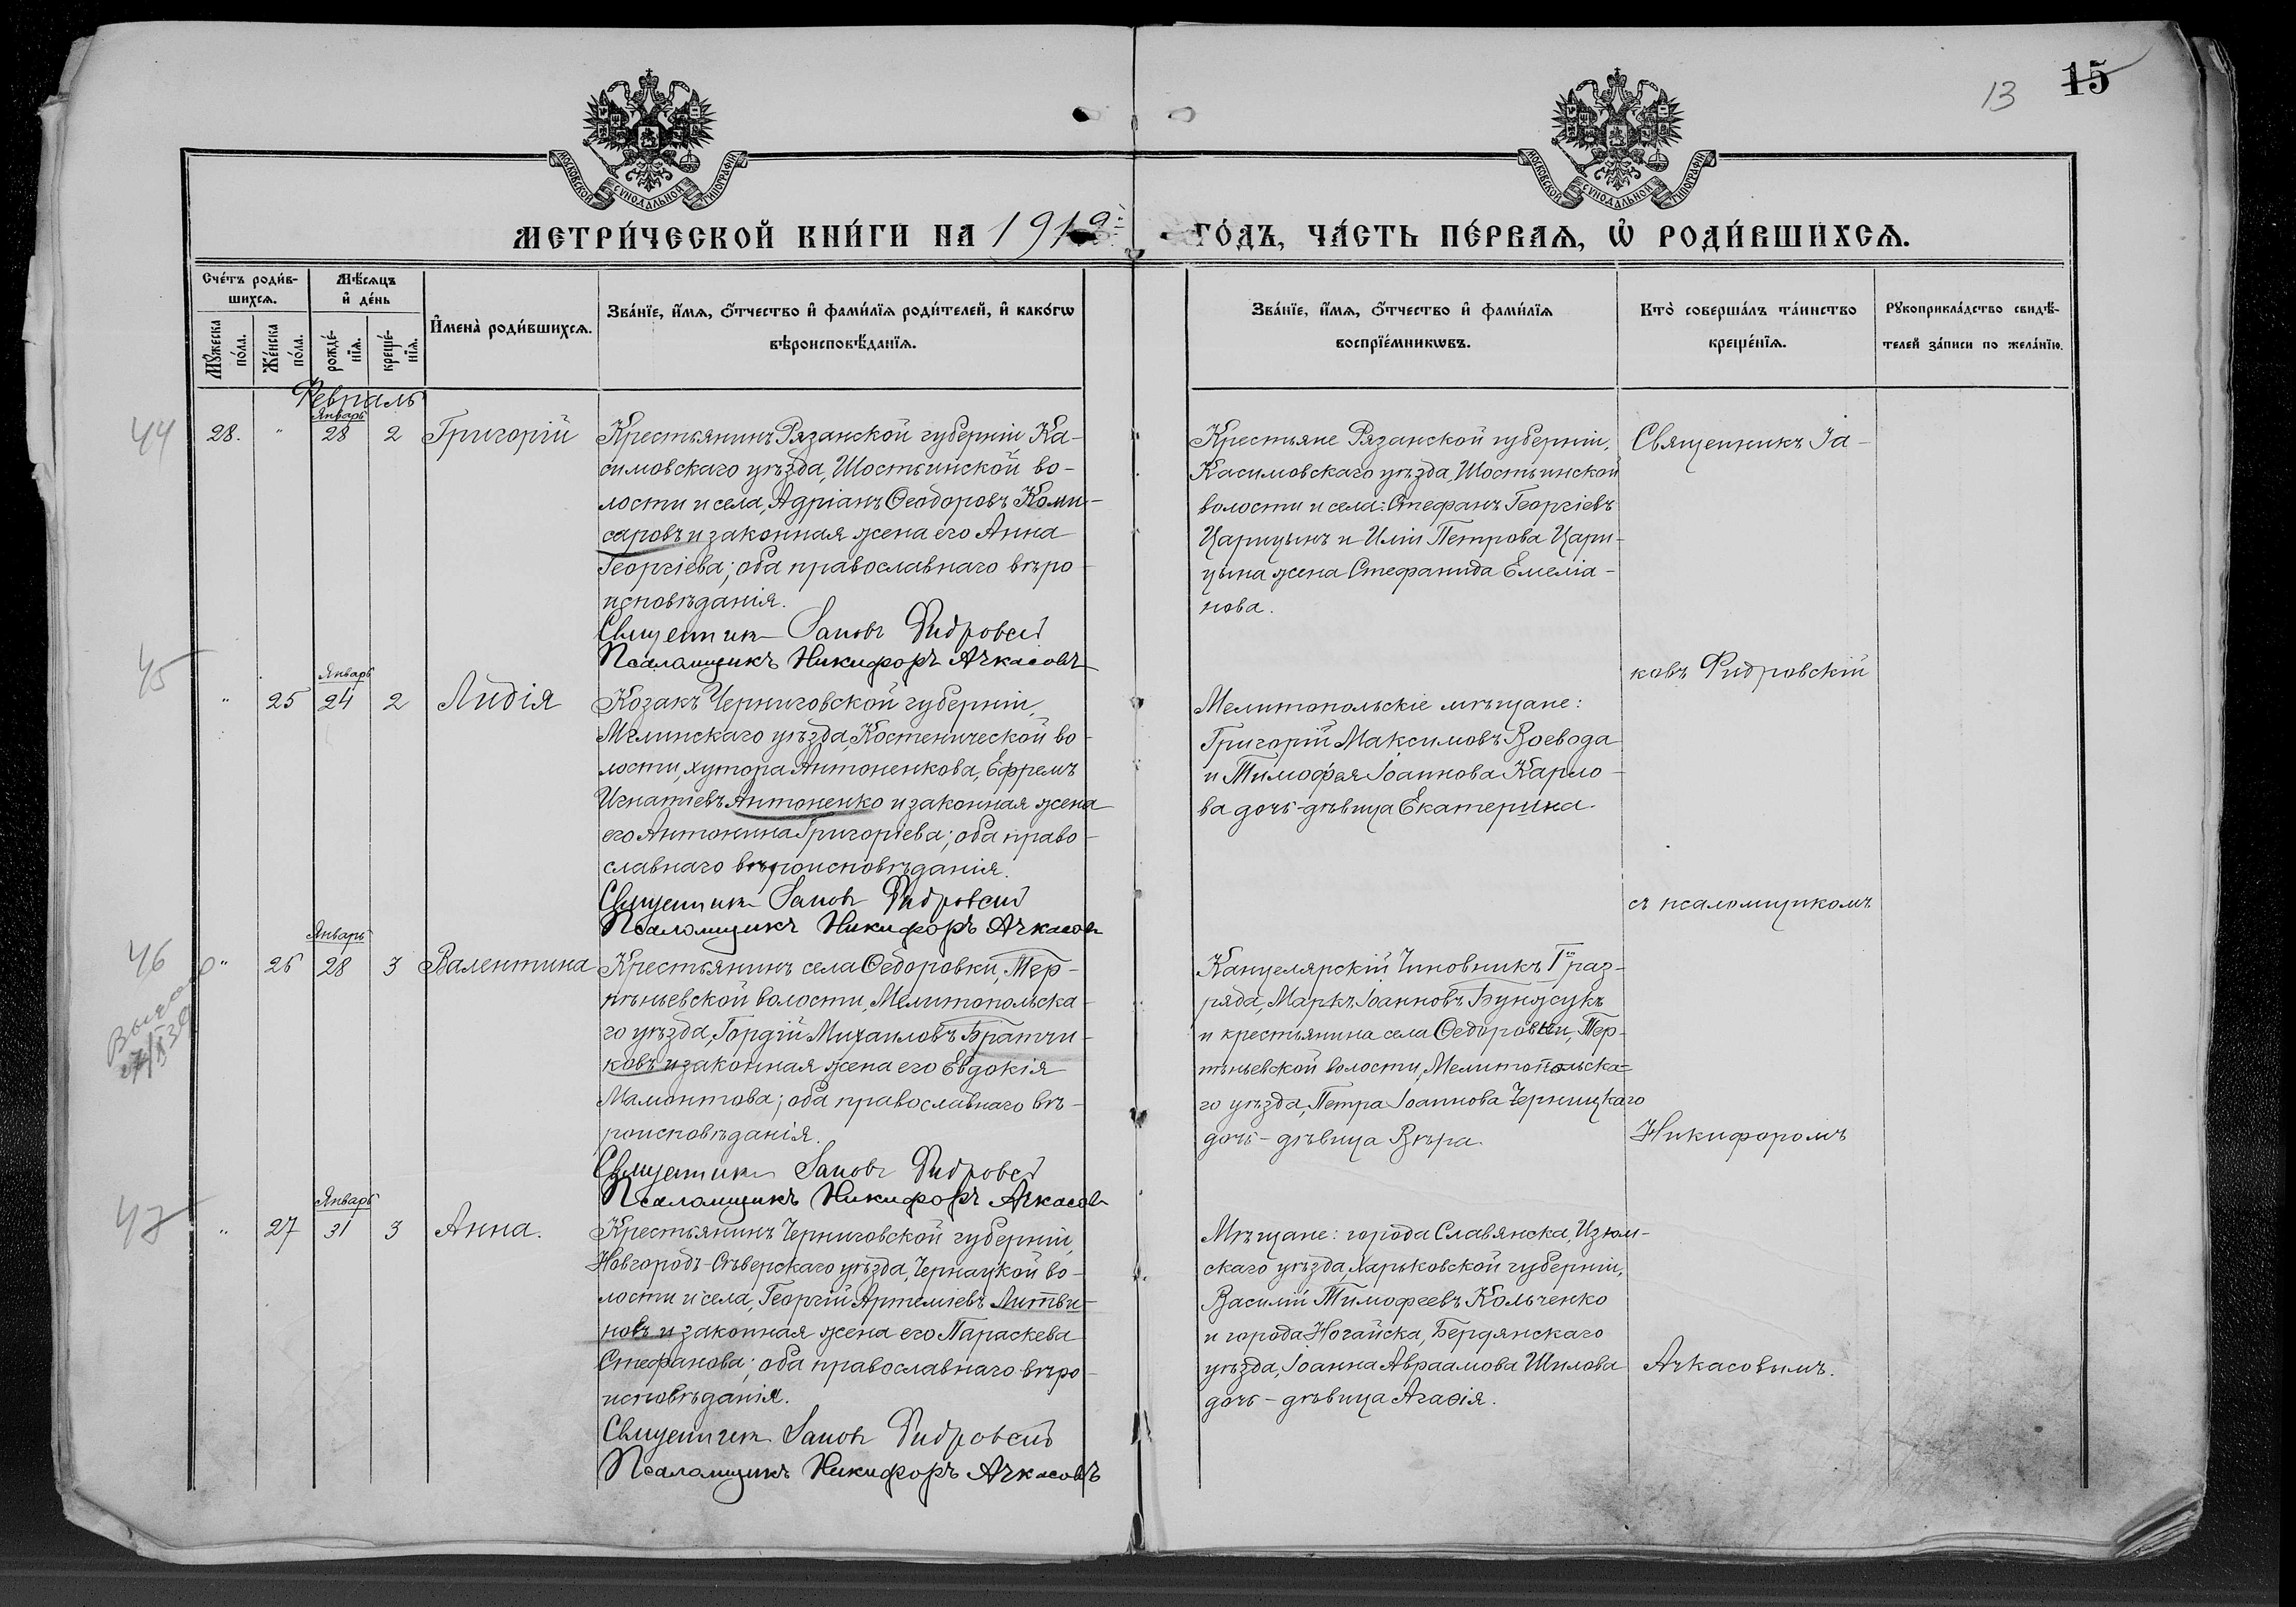 13 15
МОСКОВСКОЙ СѴНОДАЛЬНОЙ ТИПОГРАФІИ
МОСКОВСКОЙ СѴНОДАЛЬНОЙ ТИПОГРАФІИ
МЕТРИ́ЧЕСКОЙ КНИ́ГИ НА 1912 ГО́ДЪ, ЧА́СТЬ ПЕ́РВАѦ, Ѡ҆ РОДИ́ВШИХСѦ.
Сче́тъ роди́в-
шихсѧ.
Мꙋ́жеска
по́ла.
Же́нска
по́ла.
Мѣ́сѧцъ
и҆ де́нь
рожде́-
нїѧ.
креще́-
нїѧ.
И҆мена̀ роди́вшихсѧ.
Зва́нїе, и҆́мѧ, ѻ҆́тчество и҆ фами́лїѧ роди́телей, и҆ како́гѡ
вѣроисповѣ́данїѧ.
Зва́нїе, и҆́мѧ, ѻ҆́тчество и҆ фами́лїѧ
воспрїе́мникѡвъ.
Кто̀ соверша́лъ та́инство
креще́нїѧ.
Рꙋкоприкла́дство свидѣ́-
телей за́писи по жела́нїю.
Февраль
44
28. " Январь 28 2 Григорій
Крестьянинъ Рязанской губерніи Ка-
симовскаго уѣзда, Шостьинской во-
лости и села, Адріанъ Ѳеодоровъ Коми-
саровъ и законная жена его Анна
Георгіева; оба православнаго вѣро-
исповѣданія.
Священникъ Іаковъ Фидровскій
Псаломщикъ Никифоръ Ачкасовъ
Крестьяне Рязанской губерніи,
Касимовскаго уѣзда, Шостьинской
волости и села: Стефанъ Георгіевъ
Царицынъ и Иліи Петрова Цари-
цына жена Стефанида Емеліа-
нова.
Священникъ Іа-
45
" 25 Январь 24 2 Лидія
Козакъ Черниговской губерніи,
Мглинскаго уѣзда, Костеничской во-
лости, хутора Антоненкова, Ефремъ
Игнатіевъ Антоненко и законная жена
его Антонина Григоріева; оба право-
славнаго вѣроисповѣданія.
Священникъ Іаковъ Фидровскій
Псаломщикъ Никифоръ Ачкасовъ
Мелитопольскіе мѣщане:
Григорій Максимовъ Воевода
и Тимофея Іоаннова Карло-
ва дочь-дѣвица Екатерина.
ковъ Фидровскій
46
" 26 Январь 28 3 Валентина
Крестьянинъ села Ѳедоровки, Тер-
пѣньевской волости, Мелитопольска-
го уѣзда, Гордій Михаиловъ Братчи-
ковъ и законная жена его Евдокія
Мамонтова; оба православнаго вѣ-
роисповѣданія.
Священникъ Іаковъ Фидровскій
Псаломщикъ Никифоръ Ачкасовъ
Канцелярскій Чиновникъ Iго раз-
ряда, Маркъ Іоанновъ Бунжукъ
и крестьянина села Ѳедоровки, Тер-
пѣньевской волости, Мелитопольска-
го уѣзда, Петра Іоаннова Черницкаго
дочь-дѣвица Вѣра.
съ псаломщикомъ
Никифоромъ
47
" 27 Январь 31 3 Анна.
Крестьянинъ Черниговской губерніи,
Новгородъ-Сѣверскаго уѣзда, Чернацкой во-
лости и села, Георгій Артеміевъ Литви-
новъ и законная жена его Параскева
Стефанова; оба православнаго вѣро-
исповѣданія.
Священникъ Іаковъ Фидровскій
Псаломщикъ Никифоръ Ачкасовъ
Мѣщане: города Славянска, Изюм-
скаго уѣзда, Харьковской губерніи,
Василій Тимофеевъ Кольченко
и города Ногайска, Бердянскаго
уѣзда, Іоанна Авраамова Шилова
дочь-дѣвица Агаѳія.
Ачкасовымъ.